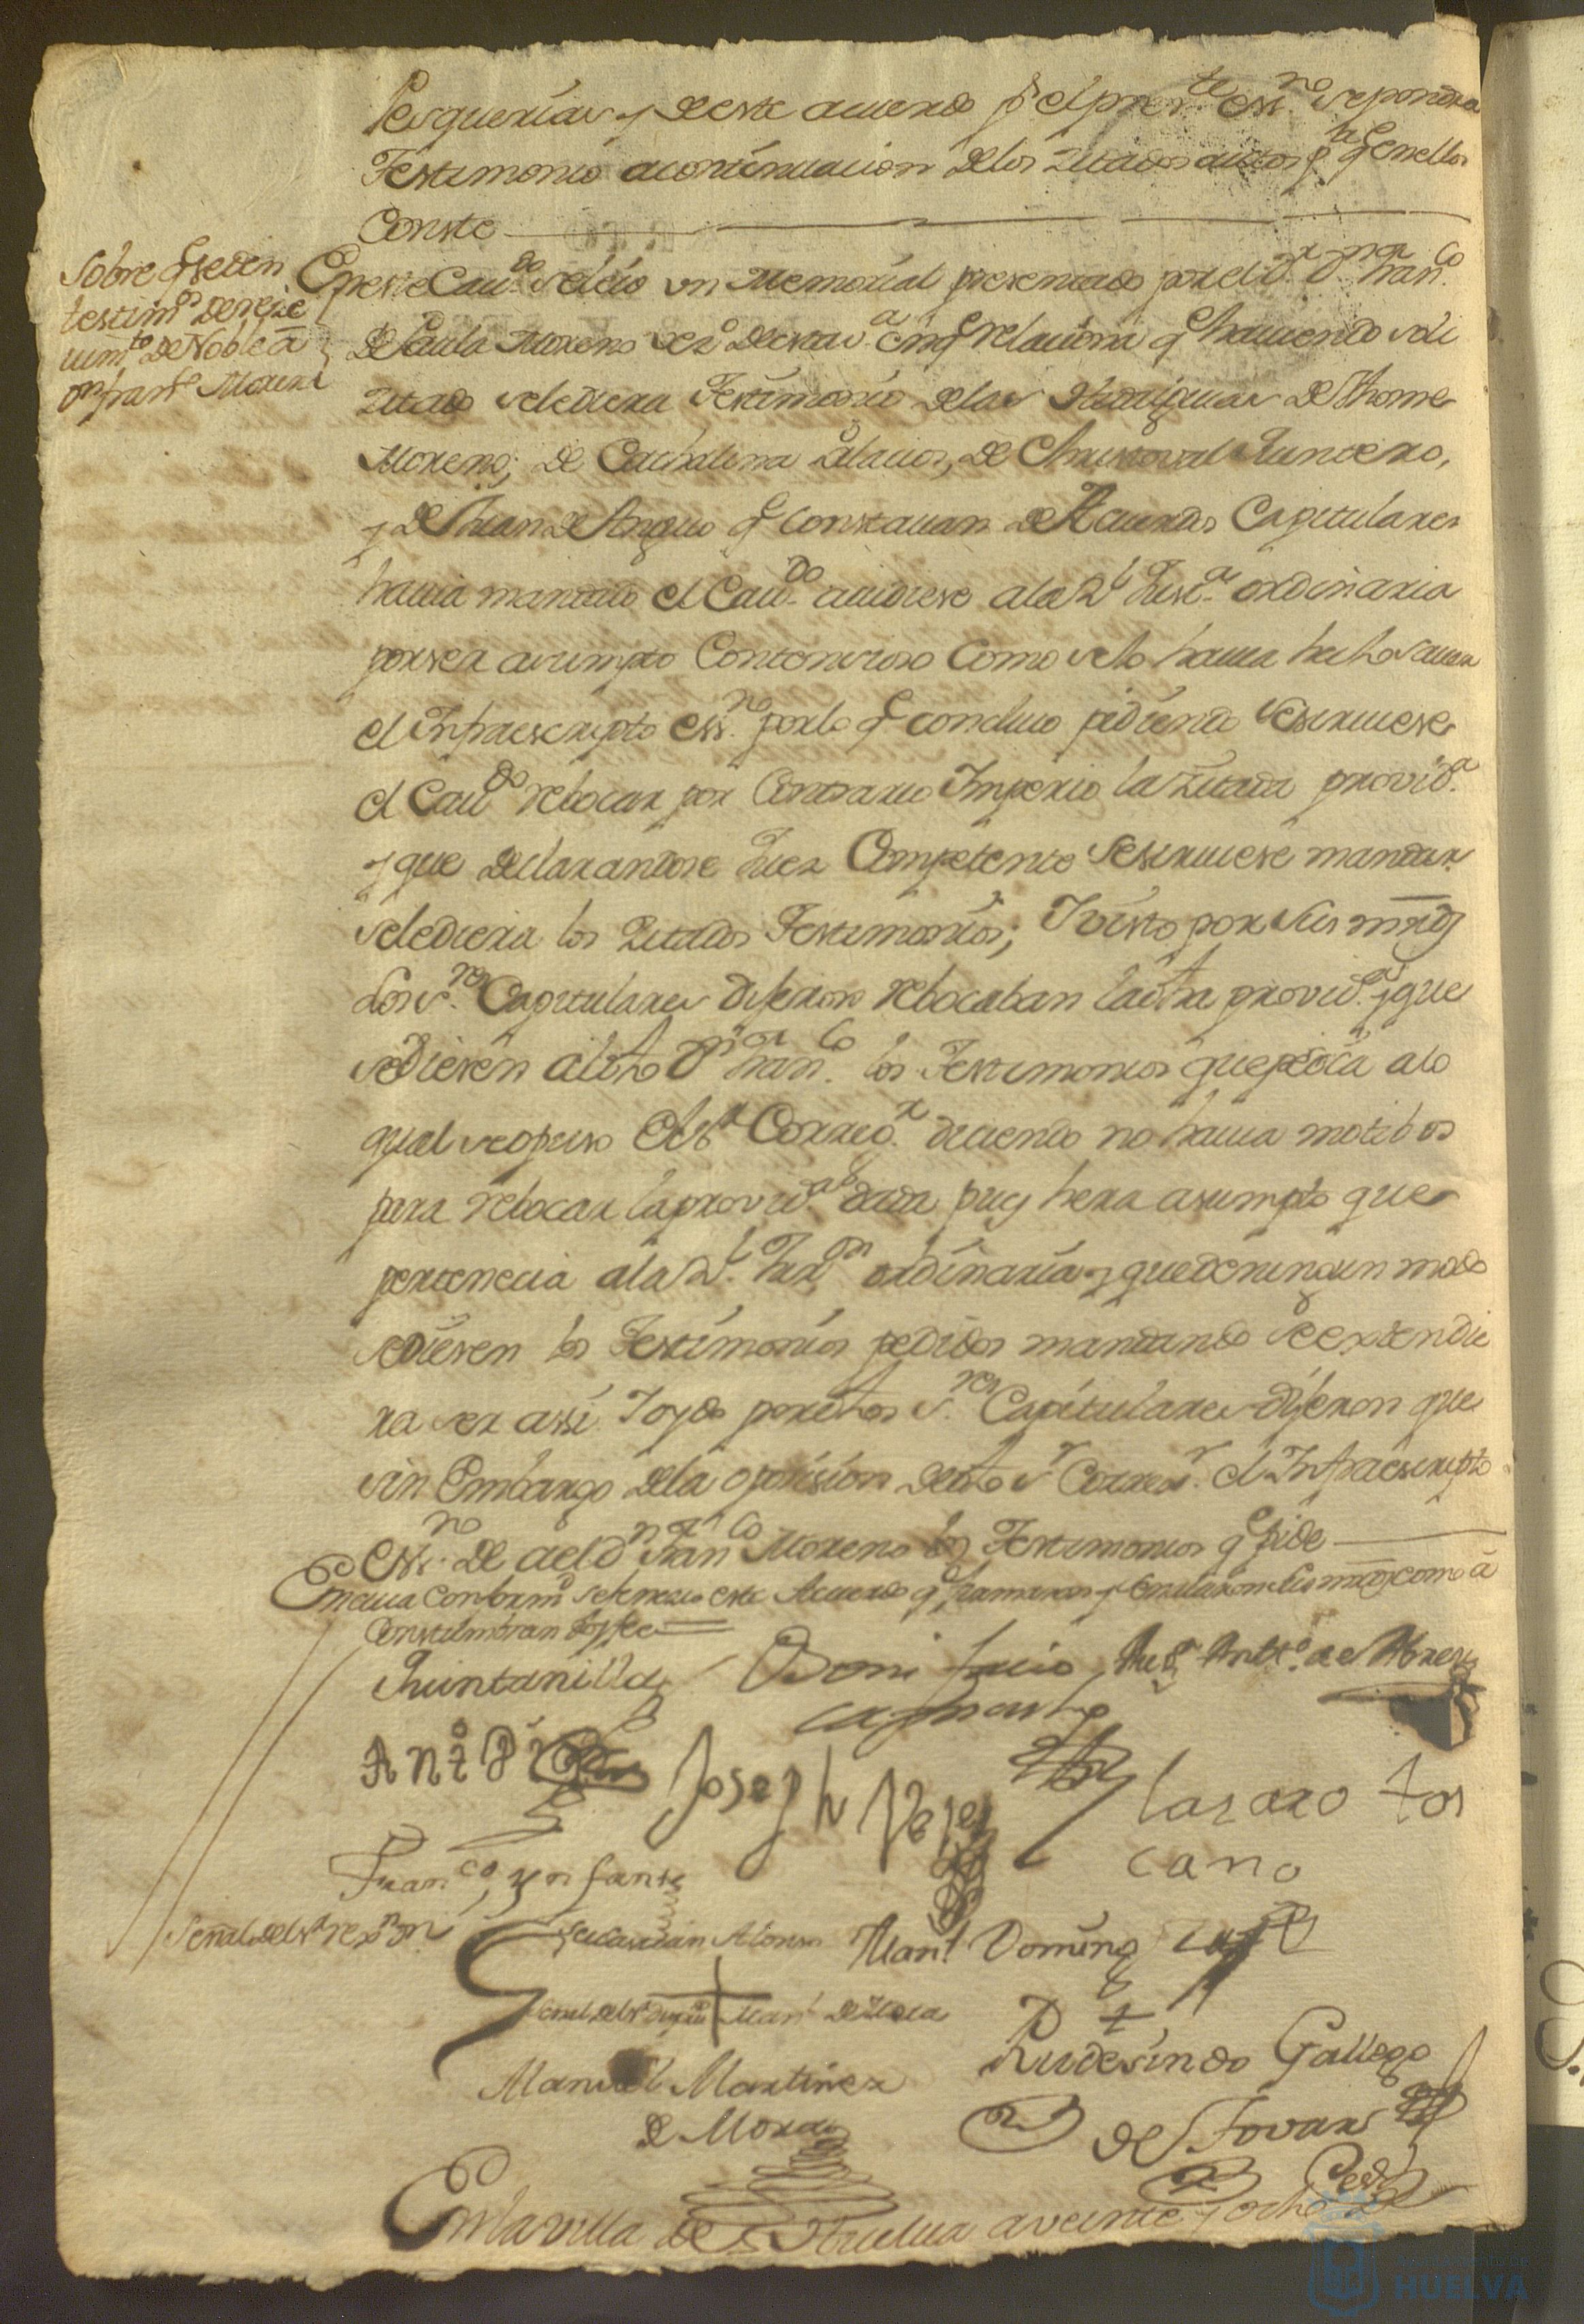 Pesquerias y de este acuerdo p.r el pres.te ess.no se pondra
Testimonio a continuacion de los zitados autos p.a q.e en ellos
Conste
Sobre q.e se den
testim.os de reze
uim.to de Noble a
D.n fran.co Moreno
En este Cau.do se leio un Memorial presentado por el D.r D.n Fran.co
de Paula Moreno vez.o de esta v.a en q.e relaciona q.e hauiendo soli
zitado se le diera Testimonio de las Hidalguias de Thome
Moreno, de Cathalina Palacios, de Christoval Quintero,
y de Juan de Angulo q.e constauan de Acuerdos Capitulares
hauia mandado el Cau.do acudiese a la R.l Jus.a ordinaria
por ser asumpto Contencioso como se lo hauia hecho sauer
el Infraescripto ess.no por lo q.e concluio pidiendo se siruiese
el Cau.do rebocar por Contrario Imperio la zitada provid.a
y que declarandose Juez Competente se siruiese mandar
se le diera los zitados Testimonios; Y visto por sus mrds
Los s.res Capitulares dijeron rebocaban la dha provid.a y que
se diesen al dho D.n Fran.co los Testimonios que pedia a lo
qual se opuso el s.r Correg.r diciendo no hauia motibos
para rebocar la provid.a dada pues hera asumpto que
pertenecia a la R.l Jur.on ordinaria y que de ningun modo
se diesen los Testimonios pedidos mandando se extendie
ra ser assi. Y oydo por dhos s.res Capitulares dijeron que
sin Embargo de la oposision de dho s.r Correg.r el Infraescripto
ess.no de a el D.n Fran.co Moreno los Testimonios q.e pide
En cuia conform.d se fenecio este Acuerdo q.e firmaron y señalaron sus mrds como a
Constumbran doy fee
Quintanilla Bonifacio Ant.o de
Ant.o Joseph Lazaro tos
cano
Fran.co Ynfante
Señal del s.r rex.or
Sebastian Alonso Man.l Doming
Señal del s.r Man.l de Mora
Rudesindo Gallego
Manuel Martinez
de Mora de Tovar
En la villa de Huelua a veinte y ocho de
HUELVA